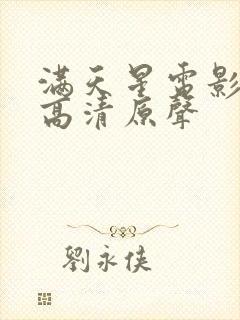 滿天星電影
高清原聲
劉永俠